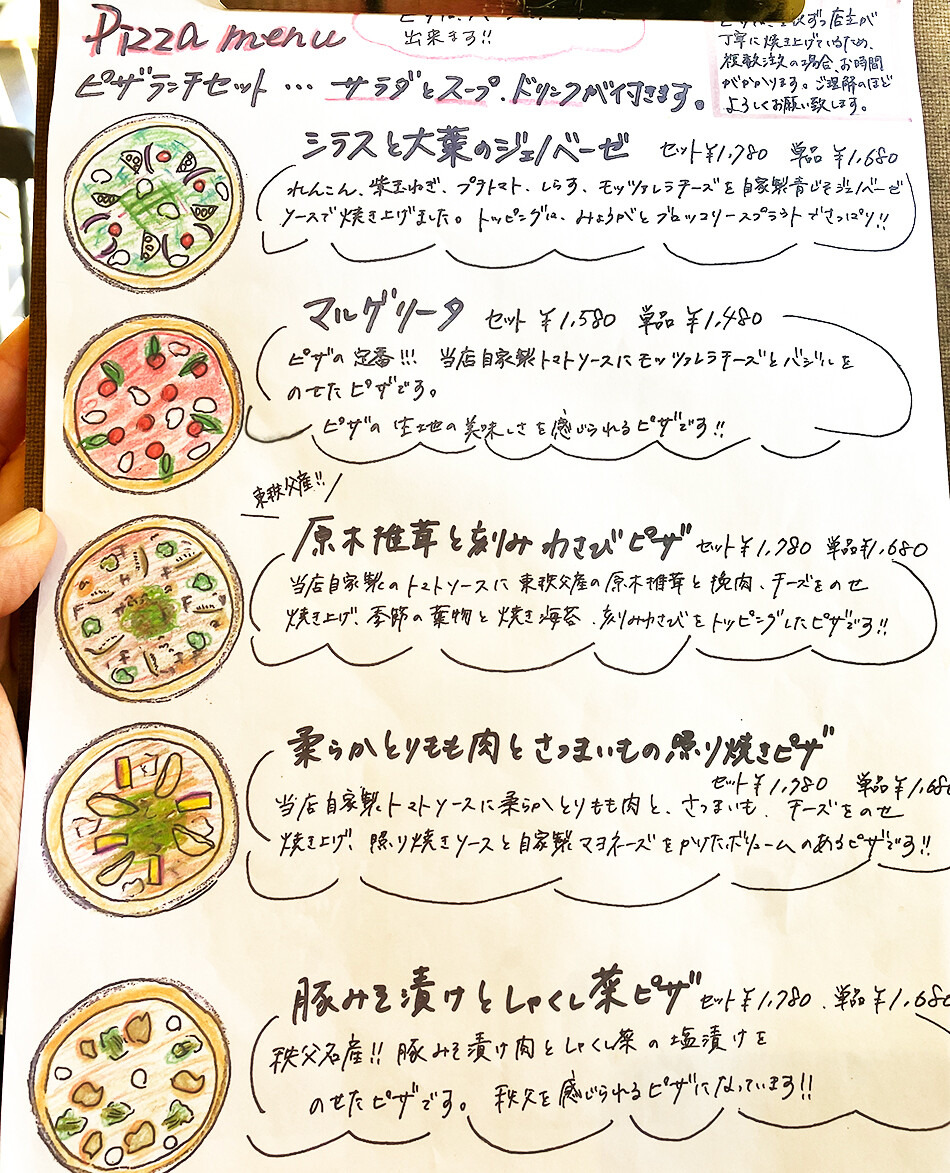 Pizza menu
出来ます!!
丁寧に焼き上げているため、
複数注文の場合、お時間
がかかります。ご理解のほど
よろしくお願い致します。
ピザランチセット … サラダとスープ、ドリンクが付きます。
シラスと大葉のジェノベーゼ セット¥1,780 単品¥1,680
れんこん、紫玉ねぎ、プチトマト、しらす、モッツァレラチーズを自家製青じそジェノベーゼ
ソースで焼き上げました。トッピングは、みょうがとブロッコリースプラウトでさっぱり!!
マルゲリータ セット ¥1,580 単品 ¥1,480
ピザの定番!!! 当店自家製トマトソースにモッツァレラチーズとバジルを
のせたピザです。
ピザの生地の美味しさを感じられるピザです!!
東秩父産!!
原木椎茸と刻みわさびピザ セット¥1,780 単品¥1,680
当店自家製のトマトソースに東秩父産の原木椎茸と挽肉、チーズをのせ
焼き上げ、季節の葉物と焼き海苔、刻みわさびをトッピングしたピザです!!
柔らかとりもも肉とさつまいもの照り焼きピザ
セット¥1,780 単品¥1,680
当店自家製トマトソースに柔らかとりもも肉と、さつまいも、チーズをのせ
焼き上げ、照り焼きソースと自家製マヨネーズをかけたボリュームのあるピザです!!
豚みそ漬けとしゃくし菜ピザ セット¥1,780、単品¥1,680
秩父名産!! 豚みそ漬け肉としゃくし菜の塩漬けを
のせたピザです。秩父を感じられるピザになっています!!